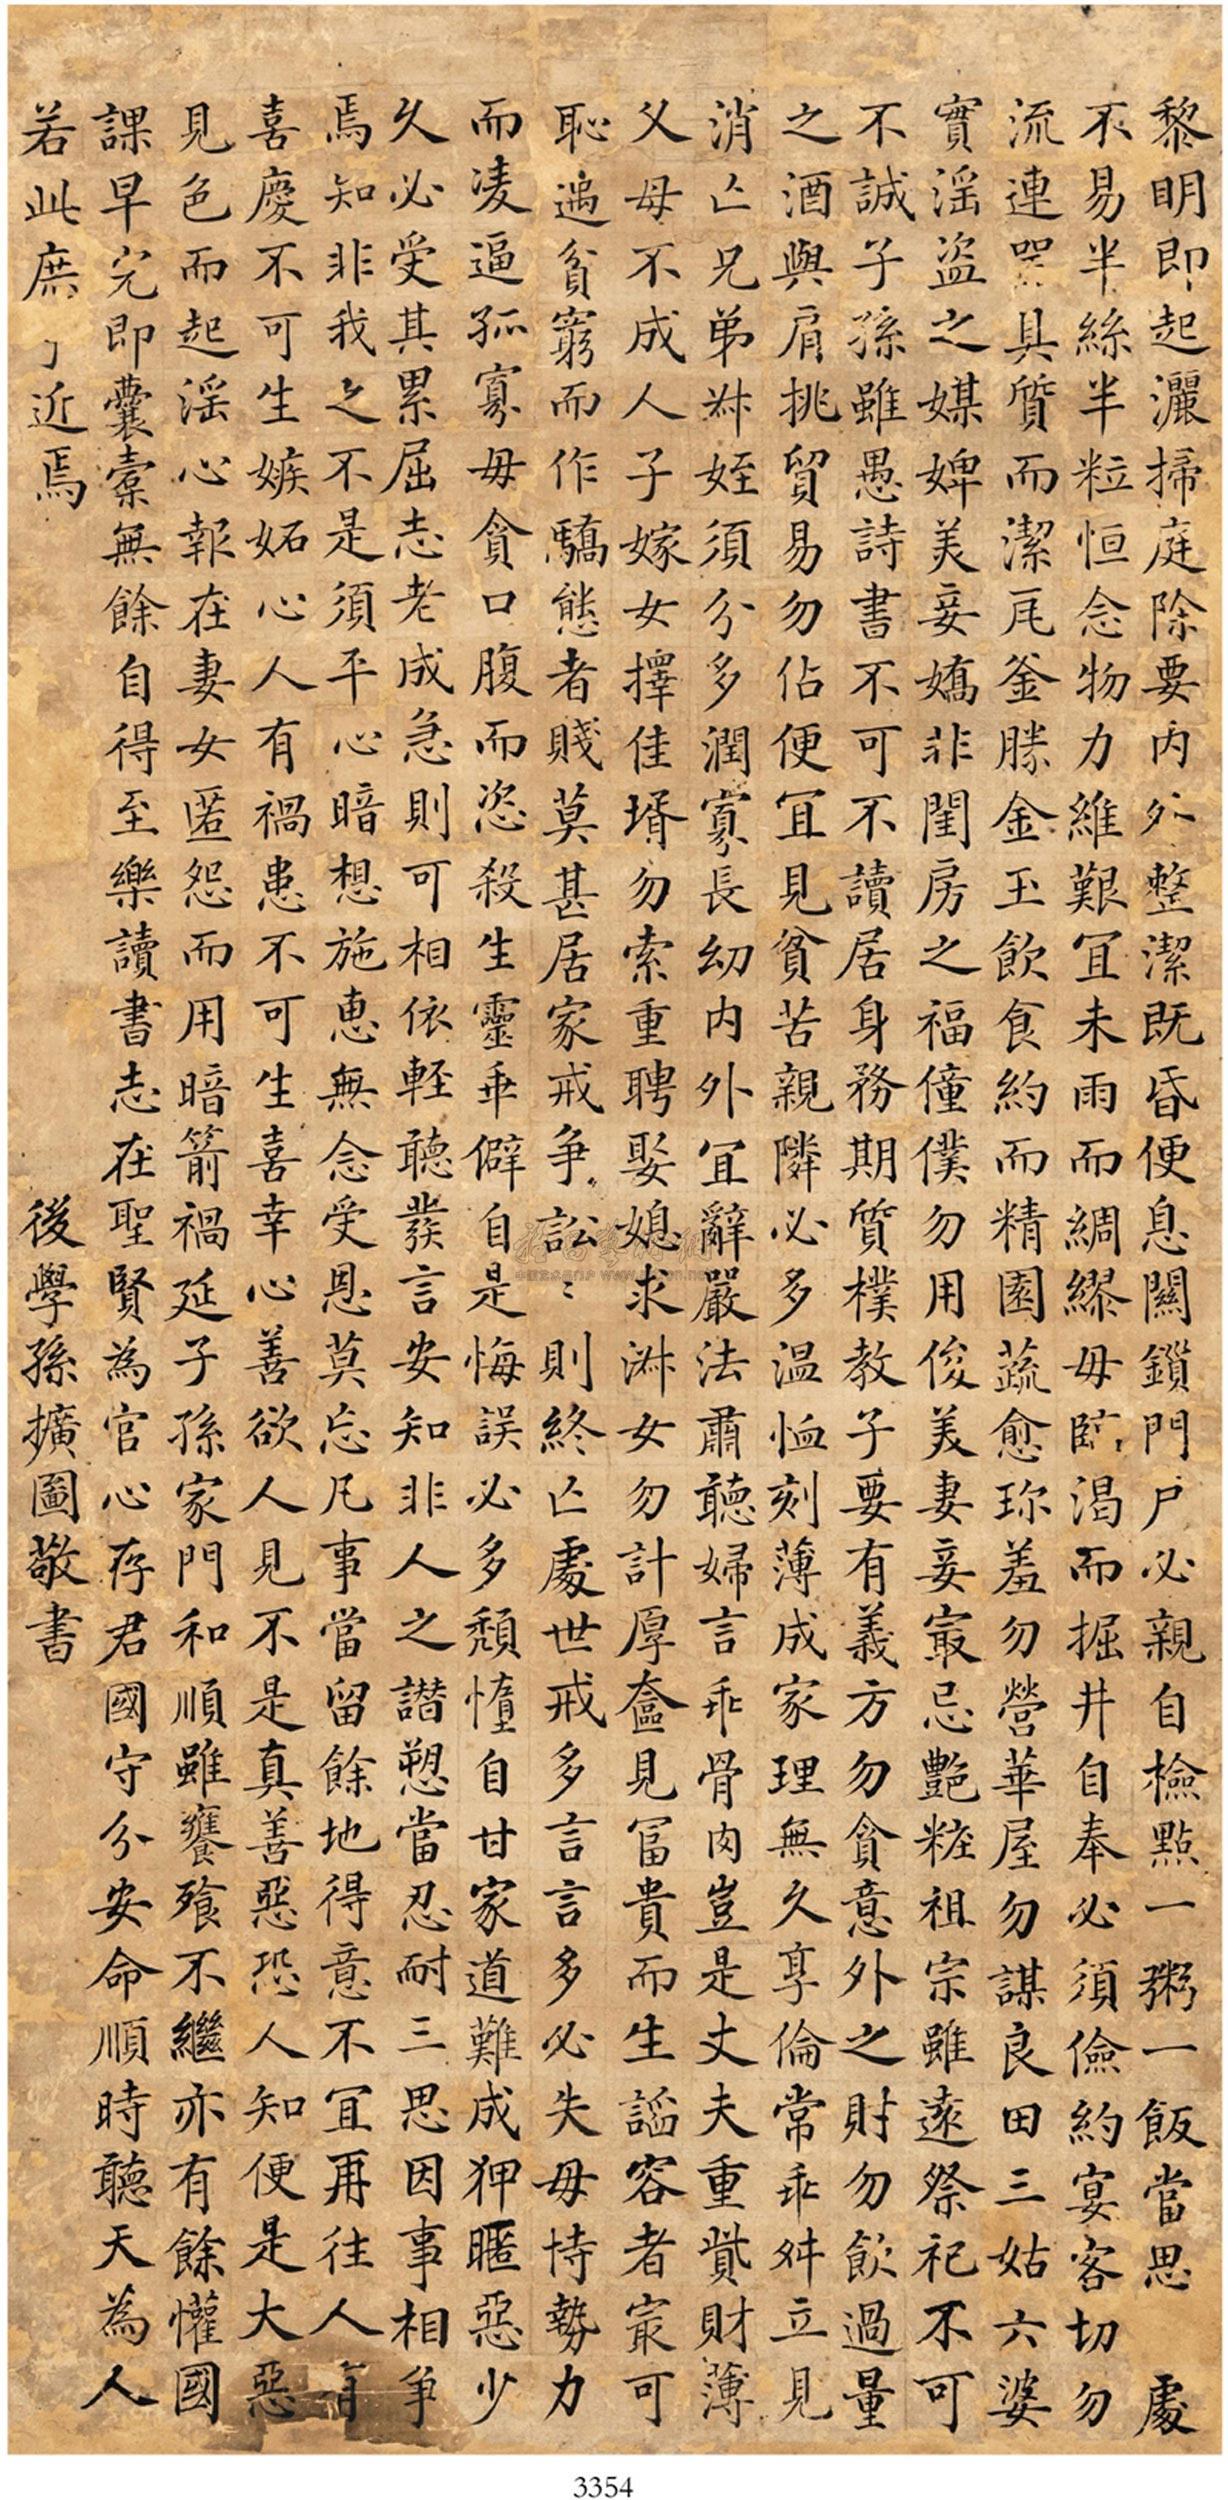 黎明即起灑掃庭除要內外整潔既昏便息關鎖門戶必親自檢點一粥一飯當思處
不易半絲半粒恒念物力維艱宜未雨而綢繆毋臨渴而掘井自奉必須儉約宴客切勿
流連器具質而潔瓦釜勝金玉飲食約而精園蔬愈珍羞勿營華屋勿謀良田三姑六婆
實淫盜之媒婢美妾嬌非閨房之福僮僕勿用俊美妻妾最忌艷粧祖宗雖遠祭祀不可
不誠子孫雖愚詩書不可不讀居身務期質樸教子要有義方勿貪意外之財勿飲過量
之酒與肩挑貿易勿佔便宜見貧苦親隣必多溫恤刻薄成家理無久享倫常乖舛立見
消亡兄弟叔姪須分多潤寡長幼內外宜辭嚴法肅聽婦言乖骨肉豈是丈夫重貲財薄
父母不成人子嫁女擇佳壻勿索重聘娶媳求淑女勿計厚奩見冨貴而生謟容者最可
恥遇貧窮而作驕態者賤莫甚居家戒爭訟〻則終亡處世戒多言言多必失毋恃勢力
而凌逼孤寡毋貪口腹而恣殺生靈乖僻自是悔誤必多頹惰自甘家道難成狎暱惡少
久必受其累屈志老成急則可相依輕聽發言安知非人之譖愬當忍耐三思因事相爭
焉知非我之不是須平心暗想施惠無念受恩莫忘凡事當留餘地得意不宜再往人有
喜慶不可生嫉妬心人有禍患不可生喜幸心善欲人見不是真善惡恐人知便是大惡
見色而起淫心報在妻女匿怨而用暗箭禍延子孫家門和順雖饔飱不繼亦有餘懽國
課早完即囊橐無餘自得至樂讀書志在聖賢為官心存君國守分安命順時聽天為人
若此庶近焉
後學孫擴圖敬書
3354